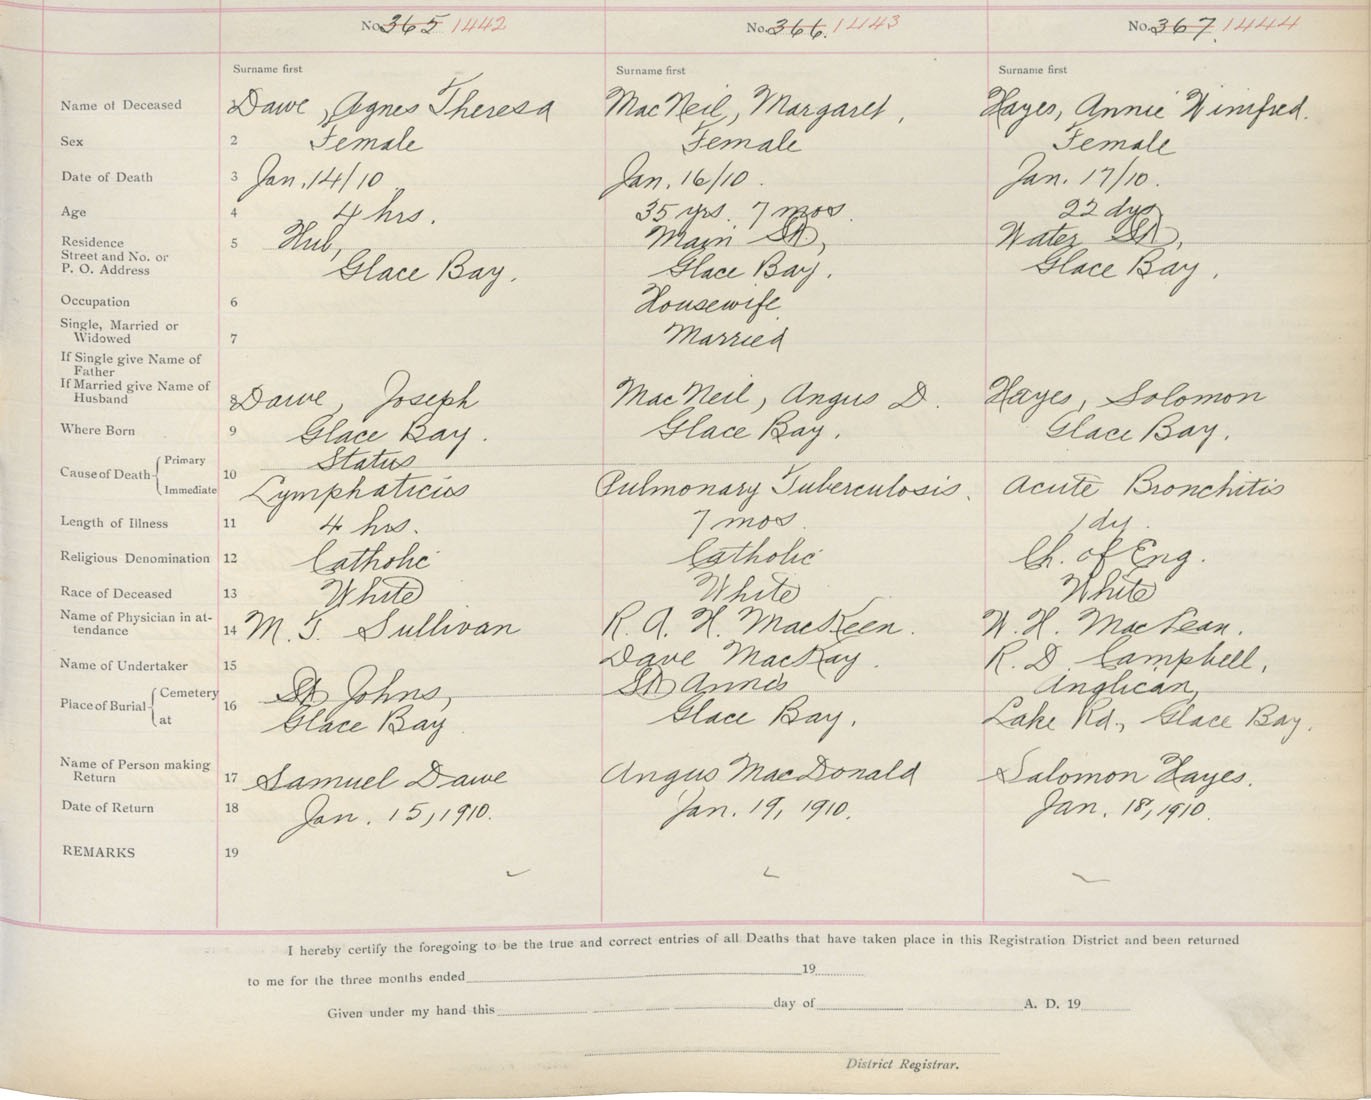 No. 365 1442 No. 366. 1443 No. 367. 1444
Surname first Surname first Surname first
Name of Deceased Dawe, Agnes Theresa MacNeil, Margaret, Hayes, Annie Winifred.
Sex 2 Female Female Female
Date of Death 3 Jan. 14/10 Jan. 16/10. Jan. 17/10.
Age 4 4 hrs. 35 yrs. 7 mos. 22 dys
Residence 5 Hub, Main St, Water St,
Street and No. or
P. O. Address Glace Bay. Glace Bay. Glace Bay.
Occupation 6 Housewife
Single, Married or
Widowed 7 Married
If Single give Name of
Father
If Married give Name of
Husband 8 Dawe, Joseph MacNeil, Angus D. Hayes, Solomon
Where Born 9 Glace Bay. Glace Bay. Glace Bay.
Cause of Death Primary Status
10
Immediate Lymphaticus Pulmonary Tuberculosis. Acute Bronchitis
Length of Illness 11 4 hrs. 7 mos. 1 dy.
Religious Denomination 12 Catholic Catholic Ch. of Eng.
Race of Deceased 13 White White White
Name of Physician in at-
tendance 14 M. T. Sullivan R. A. H. MacKeen. W. H. MacLean.
Name of Undertaker 15 Dave MacKay. R. D. Campbell,
Place of Burial Cemetery 16 St Johns, St Anne's Anglican,
at Glace Bay Glace Bay. Lake Rd., Glace Bay.
Name of Person making
Return 17 Samuel Dawe Angus MacDonald Salomon Hayes.
Date of Return 18 Jan. 15, 1910. Jan. 19, 1910. Jan. 18, 1910.
REMARKS 19
I hereby certify the foregoing to be the true and correct entries of all Deaths that have taken place in this Registration District and been returned
to me for the three months ended 19
Given under my hand this day of A. D. 19
District Registrar.